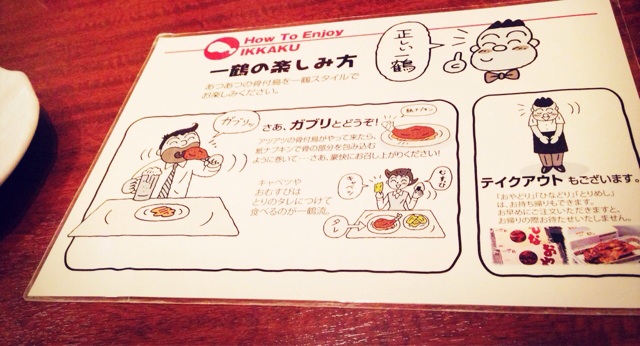 How To Enjoy
IKKAKU
一鶴の楽しみ方
あつあつの骨付鳥を一鶴スタイルで
お楽しみください。
正しい
一鶴
ガブリッ
さあ、ガブリとどうぞ!
紙ナプキン
アツアツの骨付鳥がやって来たら、
紙ナプキンで骨の部分を包み込む
ように巻いて…さあ、豪快にお召し上がりください!
キャベツや
おむすびは
とりのタレにつけて
食べるのが一鶴流。
キャベツ
むすび
タレ
テイクアウトもございます。
「おやどり」「ひなどり」「とりめし」
は、お持ち帰りもできます。
お早めにご注文いただきますと、
お帰りの際お待たせいたしません。